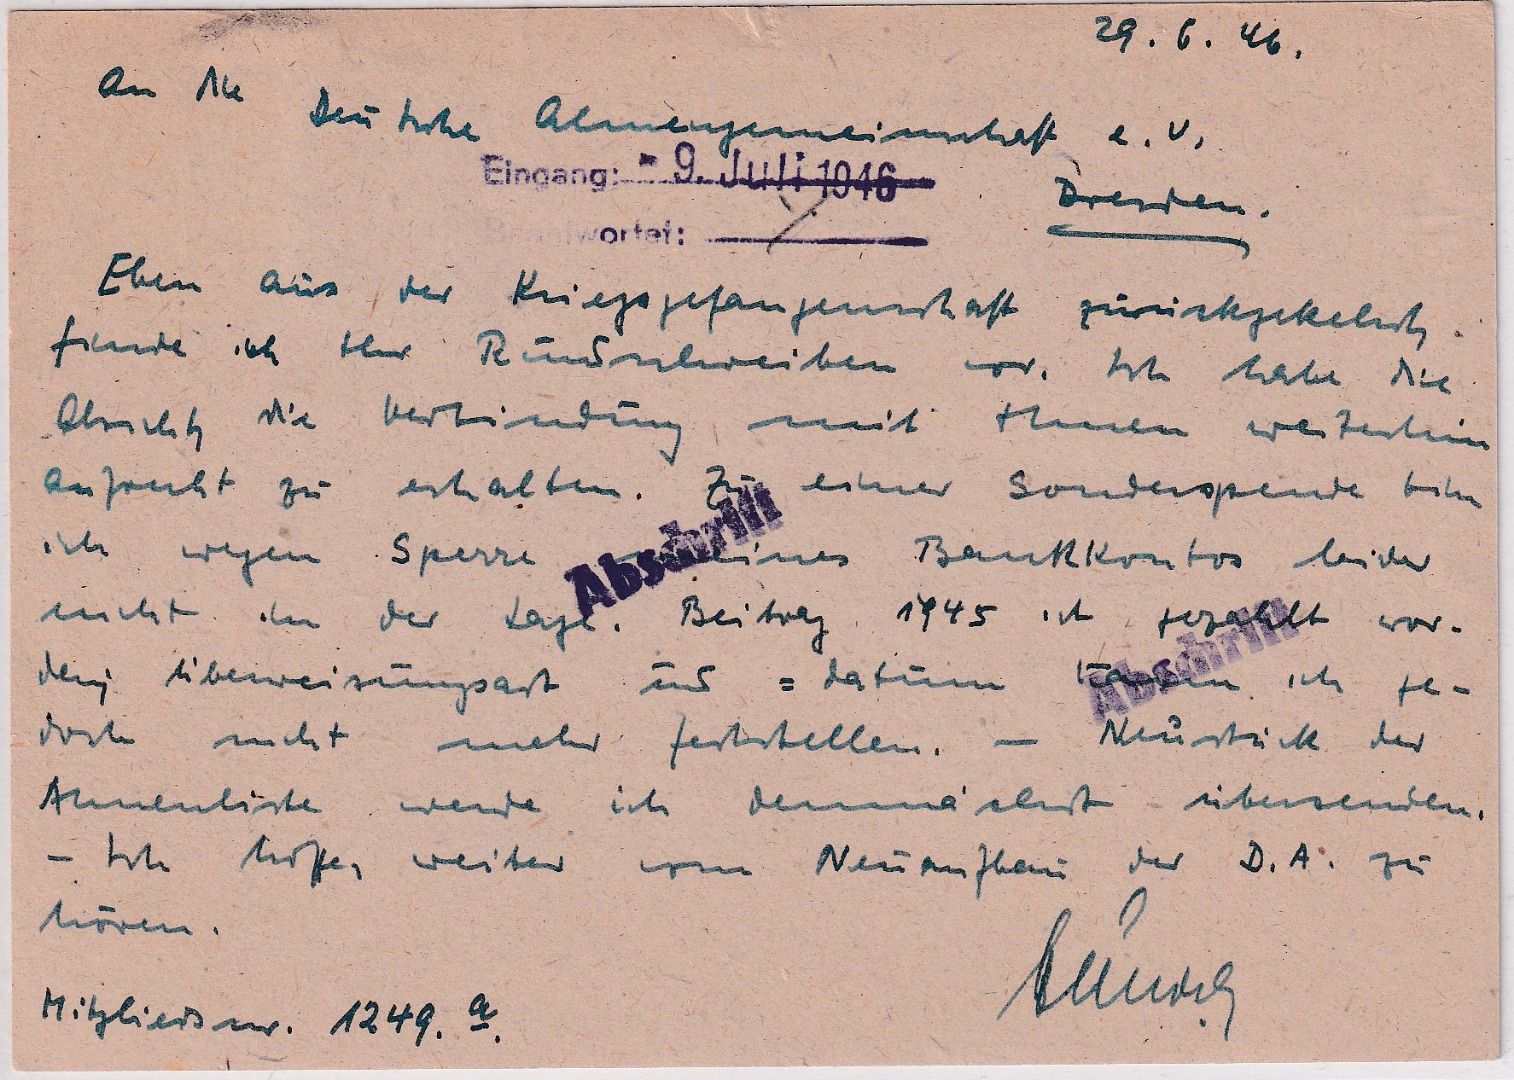 29. 6. 46.
An die
Deutsche Ahnengemeinschaft e. V.
Eingang: - 9. Juli 1946
Beantwortet:
Dresden.
Eben aus der Kriegsgefangenschaft zurückgekehrt,
finde ich Ihr Rundschreiben vor. Ich habe die
Absicht, die Verbindung mit Ihnen weiterhin
aufrecht zu erhalten. Zu einer Sonderspende bin
ich wegen Sperre meines Bankkontos leider
Abschrift
nicht in der Lage. Beitrag 1945 ist gezahlt wor-
Abschrift
den; Überweisungsart und =datum kann ich je-
doch nicht mehr feststellen. — Neustück der
Ahnenliste werde ich demnächst übersenden.
— Ich hoffe, weiter vom Neuaufbau der D. A. zu
hören.
Mitgliedsnr. 1249. a.